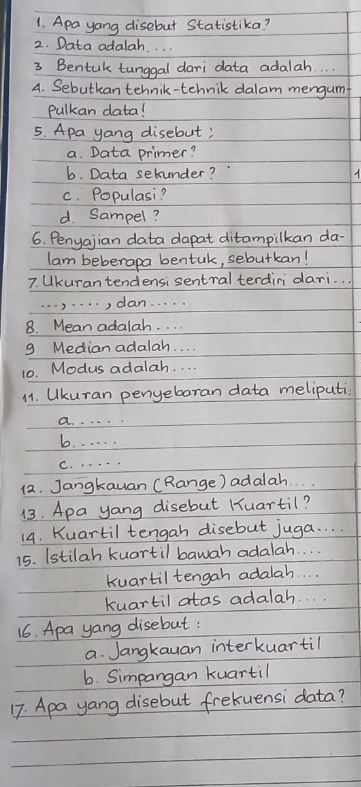 1. Apa yang disebut Statistika?
2. Data adalah....
3 Bentuk tunggal dari data adalah....
4. Sebutkan tehnik-tehnik dalam mengum-
pulkan data!
5. Apa yang disebut:
a. Data primer?
b. Data sekunder?
c. Populasi?
d. Sampel?
6. Penyajian data dapat ditampilkan da-
lam beberapa bentuk, sebutkan!
7. Ukuran tendensi sentral terdiri dari...
...,...., dan.....
8. Mean adalah....
9 Median adalah....
10. Modus adalah....
11. Ukuran penyebaran data meliputi.
a......
b......
c......
12. Jangkauan (Range) adalah....
13. Apa yang disebut Kuartil?
14. Kuartil tengah disebut juga....
15. Istilah kuartil bawah adalah....
kuartil tengah adalah....
kuartil atas adalah....
16. Apa yang disebut:
a. Jangkauan interkuartil
b. Simpangan kuartil
17. Apa yang disebut frekuensi data?